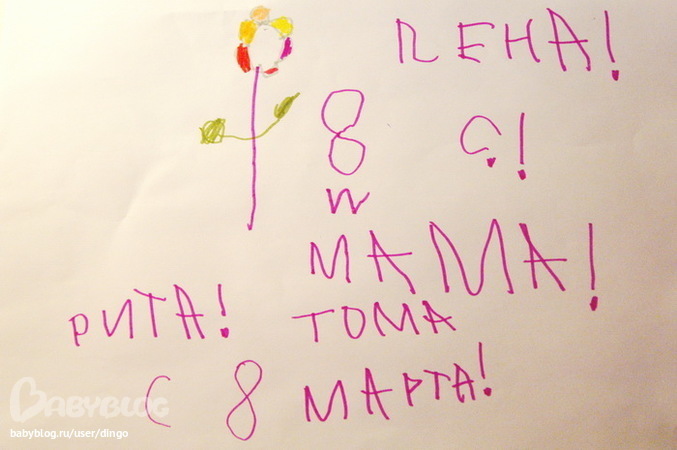 ЛЕНА!
8 С!
и
МАМА!
РИТА! ТОМА
С 8 МАРТА!
BABYBLOG
babyblog.ru/user/dingo